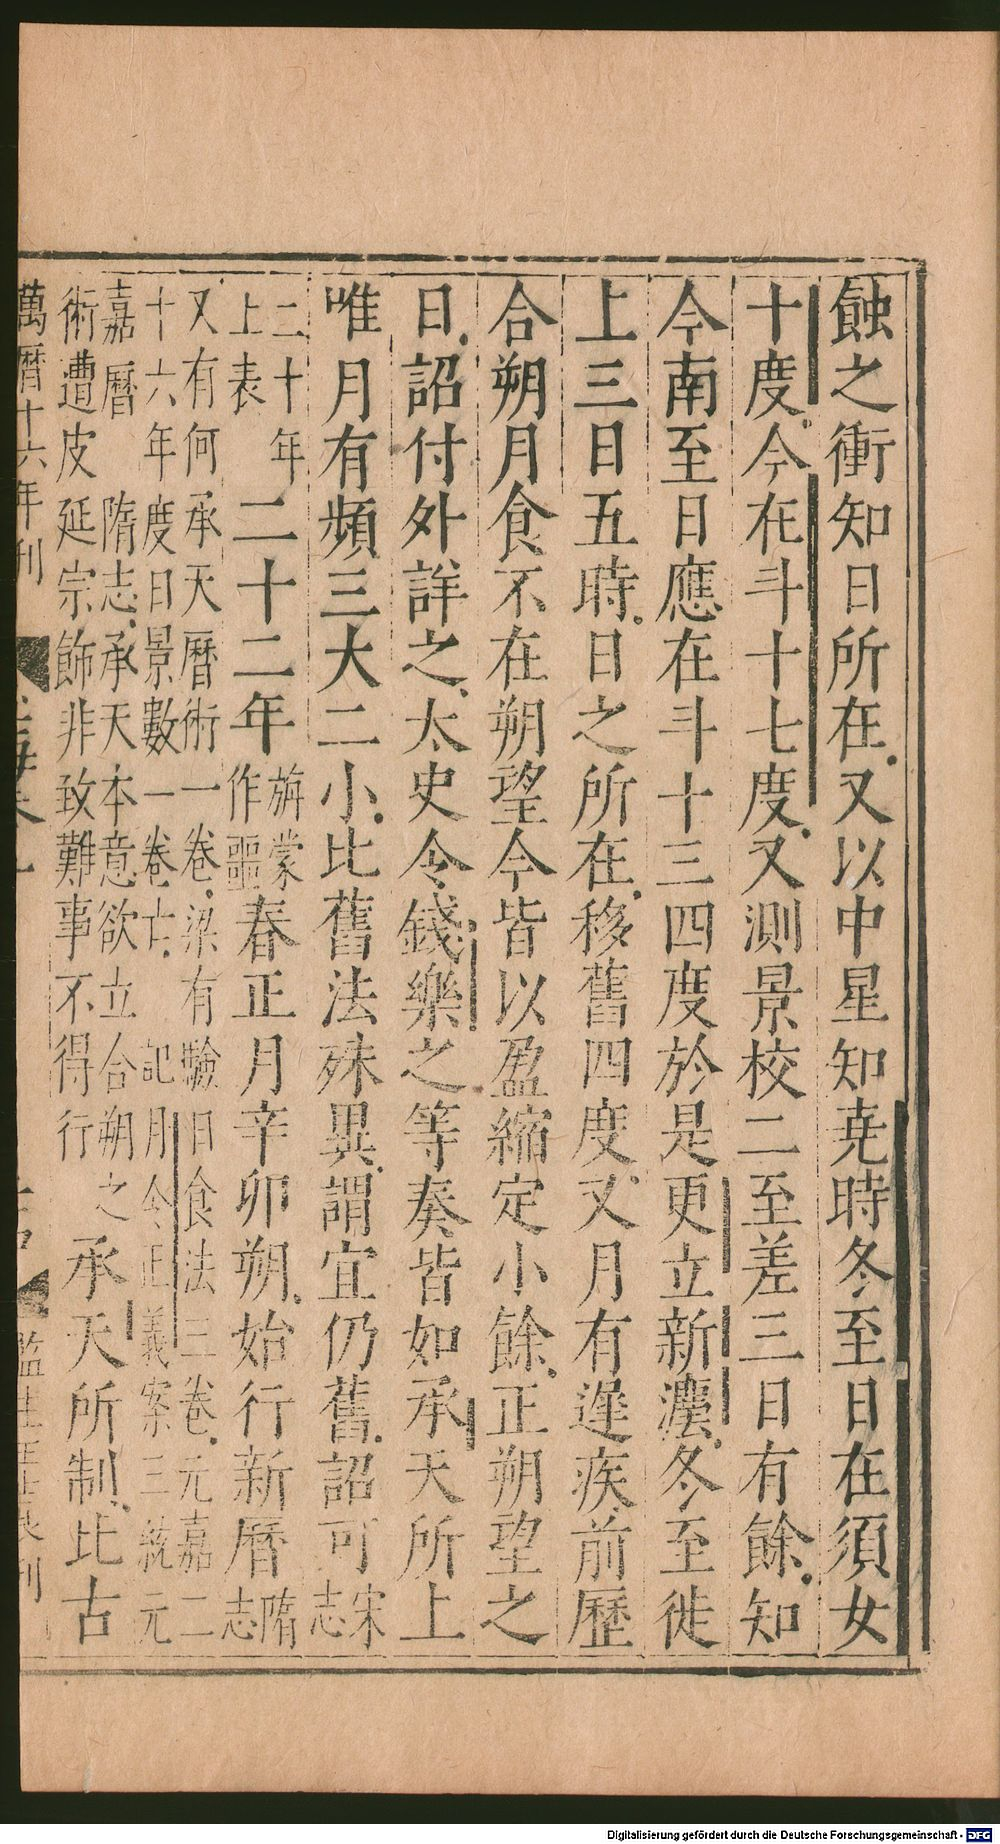 蝕之衝知日所在又以中星知尭時冬至日在須女
十度今在斗十七度又測景校二至差三日有餘知
今南至日應在斗十三四度於是更立新灋冬至徙
上三日五時日之所在移舊四度又月有遲疾前歷
合朔月食不在朔望今皆以盈縮定小餘正朔望之
日詔付外詳之太史令錢樂之等奏皆如承天所上
唯月有頻三大二小比舊法殊異謂宜仍舊詔可宋志
二十年上表二十二年旃蒙作噩春正月辛卯朔始行新曆隋志
又有何承天曆術一卷梁有驗日食法三卷元嘉二
十六年度日景數一卷亡記月令正義案三統元
嘉曆隋志承天本意欲立合朔之
術遭皮延宗飾非致難事不得行承天所制比古
萬曆十六年刊
Digitalisierung gefördert durch die Deutsche Forschungsgemeinschaft - DFG